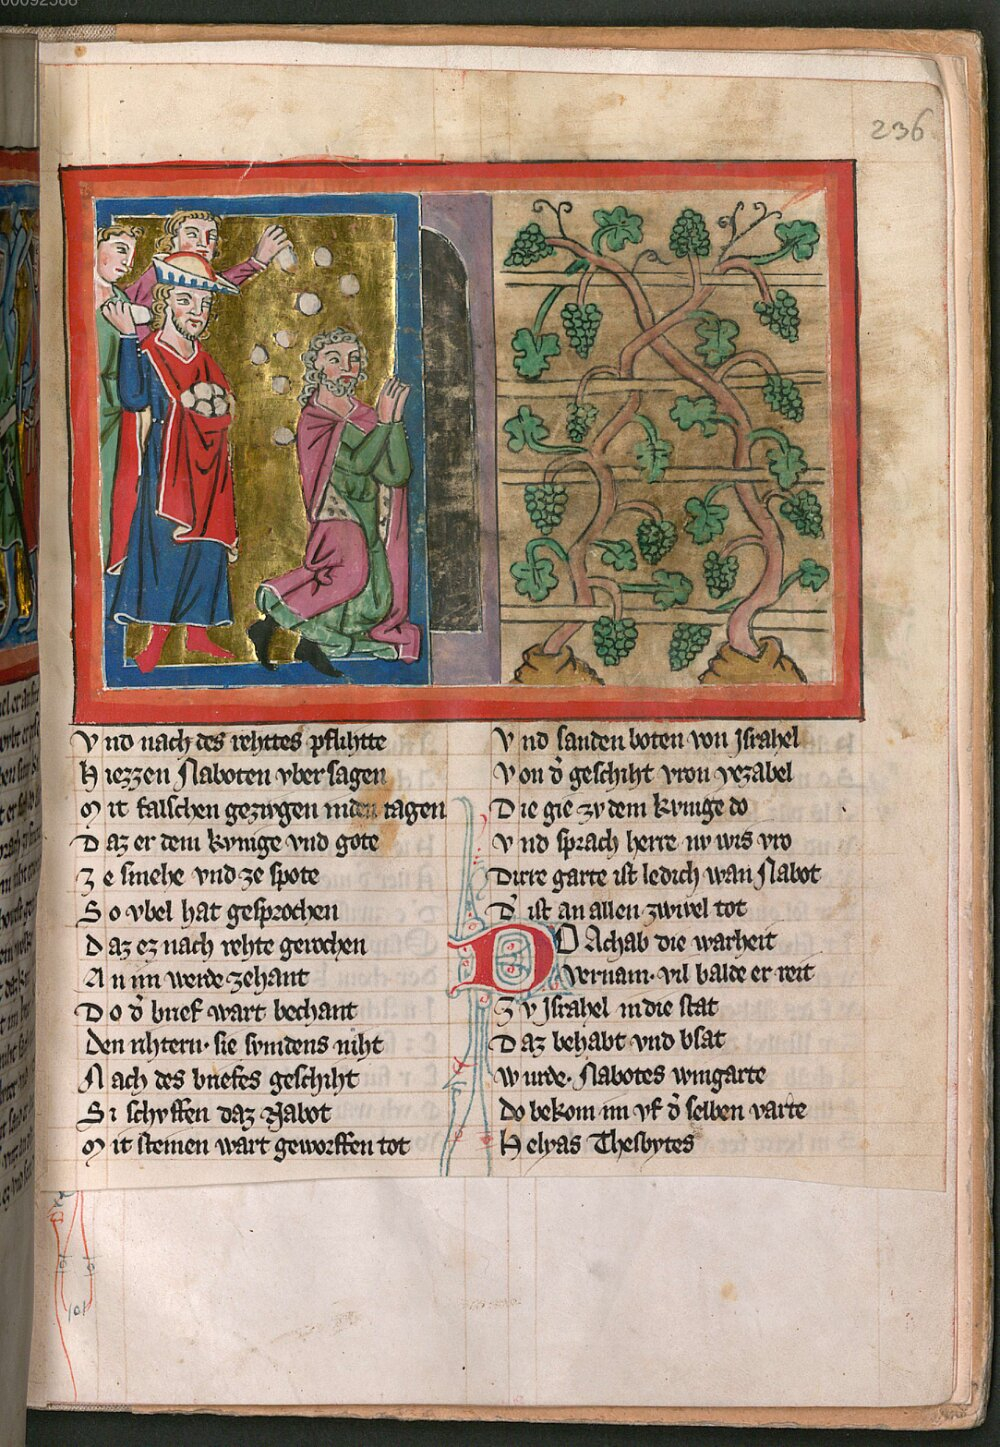 236
Vnd nach des rehttes pflihtte
Hiezzen Naboten vbersagen
Mit falschen gezivgen inden tagen
Daz er dem kvnige vnd gote
Ze smehe vnd ze spote
So vbel hat gesprochen
Daz ez nach rehte gerochen
An im werde zehant
Do d̕ brief wart bechant
Den rihtern· sie svmdens niht
Nach des briefes geschiht
Si schvffen daz Nabot
Mit steinen wart geworffen tot
Vnd sanden boten von Jsrahel
Von d̕ geschiht vron yezabel
Die gie zv dem kvnige do
Vnd sprach herre nv wis vro
Dirre garte ist ledich wan Nabot
D̕ ist an allen zwivel tot
DO Achab die warheit
Vernam· vil balde er reit
Zv Jsrahel in die stat
Daz behabt vnd bsat
Wurde· Nabotes wingarte
Do bekom im vf d̕ selben varte
Helyas Thesbytes